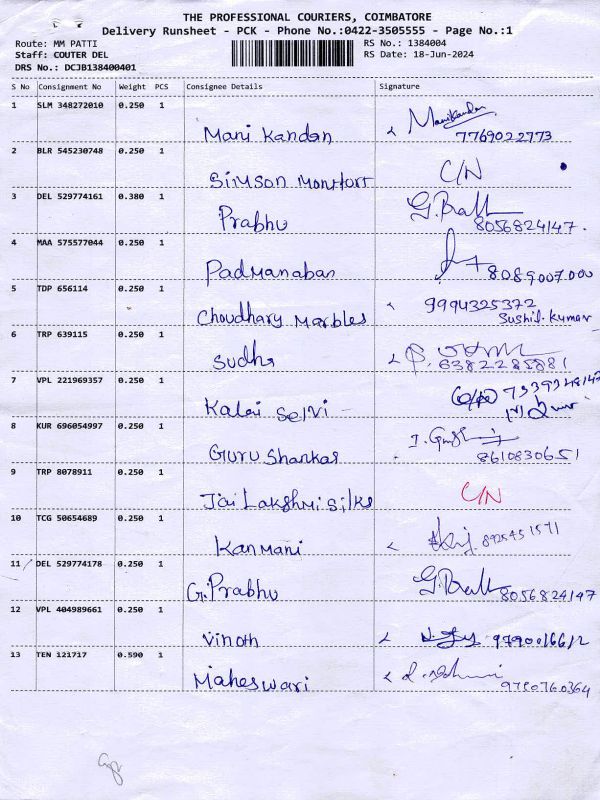 THE PROFESSIONAL COURIERS, COIMBATORE
Delivery Runsheet - PCK - Phone No.:0422-3505555 - Page No.:1
Route: MM PATTI
RS No.: 1384004
Staff: COUTER DEL
RS Date: 18-Jun-2024
DRS No.: DCJB138400401
S No Consignment No Weight PCS Consignee Details Signature
1 SLM 348272010 0.250 1
Mani Kandan Manikandan
7769022773
2 BLR 545230748 0.250 1
Simson Montfort C/N
3 DEL 529774161 0.380 1
Prabhu 8056824147.
4 MAA 575577044 0.250 1
Padmanaban 8089007000
5 TDP 656114 0.250 1
Choudhary Marbles 9994325372
Sushil Kumar
6 TRP 639115 0.250 1
Sudha 6382285881
7 VPL 221969357 0.250 1
Kalai Selvi
8 KUR 696054997 0.250 1
Guru Shankar 8610830651
9 TRP 8078911 0.250 1
Jai Lakshmi Silks C/N
10 TCG 50654689 0.250 1
Kanmani 8925451571
11 DEL 529774178 0.250 1
G. Prabhu 8056824147
12 VPL 404989661 0.250 1
Vinoth
13 TEN 121717 0.590 1
Maheswari 9780760364